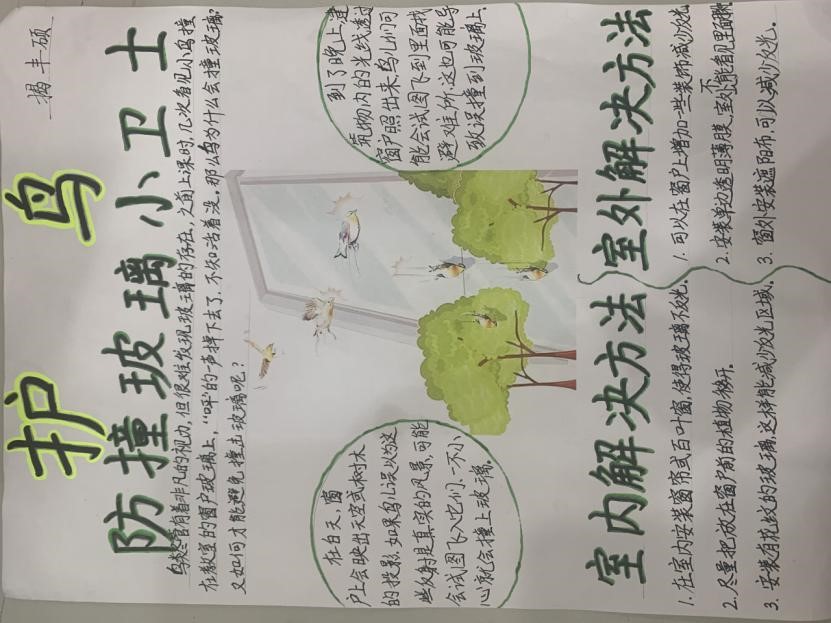 揭丰硕
护鸟
防撞玻璃小卫士
鸟类尽管有着非凡的视力,但很难发现玻璃的存在,之前上课时,几次看见小鸟撞
在教室的窗户玻璃上,“呯”的一声掉下去了,不知活着没,那么鸟为什么会撞玻璃?
又如何才能避免撞击玻璃呢?
在白天,窗
户上会映出天空或树木
的投影,如果鸟儿误以为这
些反射是真实的风景,可能
会试图飞入它们,一不小
心就会撞上玻璃。
到了晚上,建
筑物内的光线透过
窗户照出来,鸟儿们可
能会试图飞到里面找
避难所,这也可能导
致误撞到玻璃上.
室内解决方法
1.在室内安装窗帘或百叶窗,使得玻璃不反光.
2.尽量把放在窗户前的植物移开。
3.安装有花纹的玻璃,这样能减少反光区域.
室外解决方法
1.可以在窗户上增加一些装饰减少反光
2.安装单边透明薄膜,室外不能看见里面
3.窗外安装遮阳布,可以减少反光。